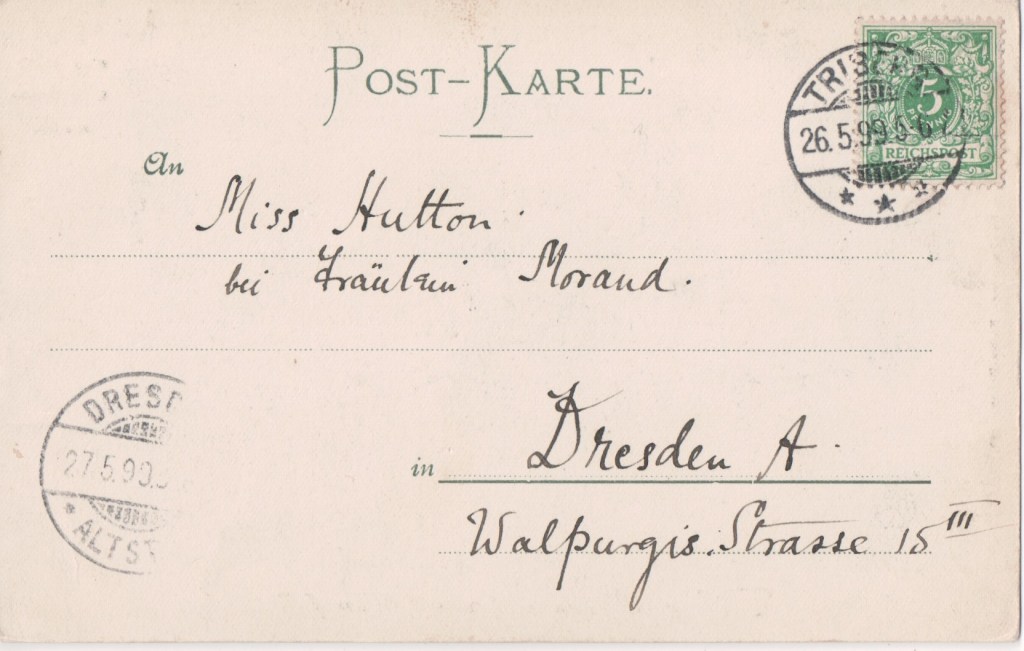 POST-KARTE.
5
REICHSPOST
26.5.99.5-6
An
Miss Hutton.
bei Fräulein Morand.
DRESD
27.5.99.
* ALTST
in Dresden A.
Walpurgis.Strasse 15 III